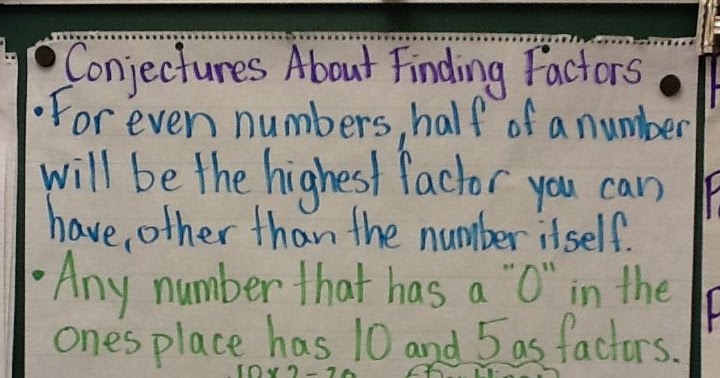 Conjectures About Finding Factors
•For even numbers, half of a number
will be the highest factor you can
have, other than the number itself.
•Any number that has a "0" in the
ones place has 10 and 5 as factors.